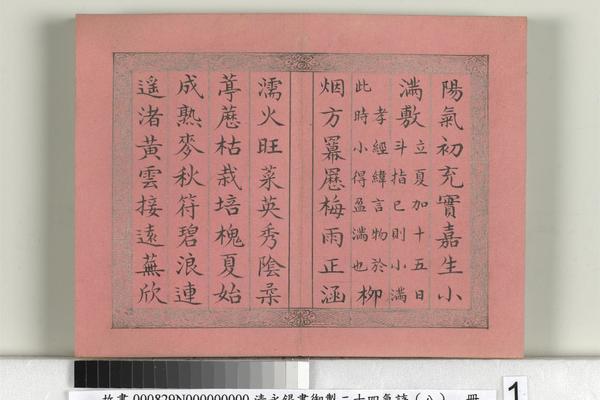 陽氣初充實嘉生小
滿敷
立夏加十五日
斗指巳則小滿
孝經緯言物於
此時小得盈滿也
柳
烟方羃梅雨正涵
濡火旺菜英秀陰柔
葶藶枯栽培槐夏始
成熟麥秋符碧浪連
遥渚黃雲接遠蕪欣
000829N000000000 清永書御製二十四氣詩(八) 冊
1